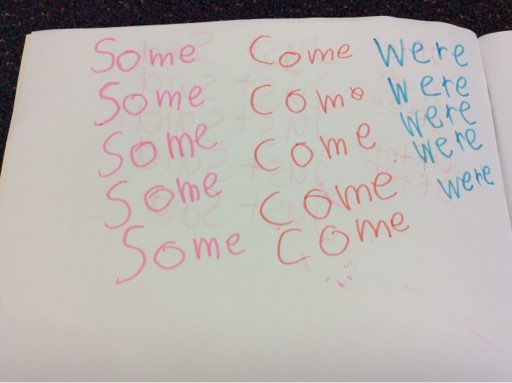 Some Come Were
Some Como Were
Some Come Were
Some Come Were
Some Come Were